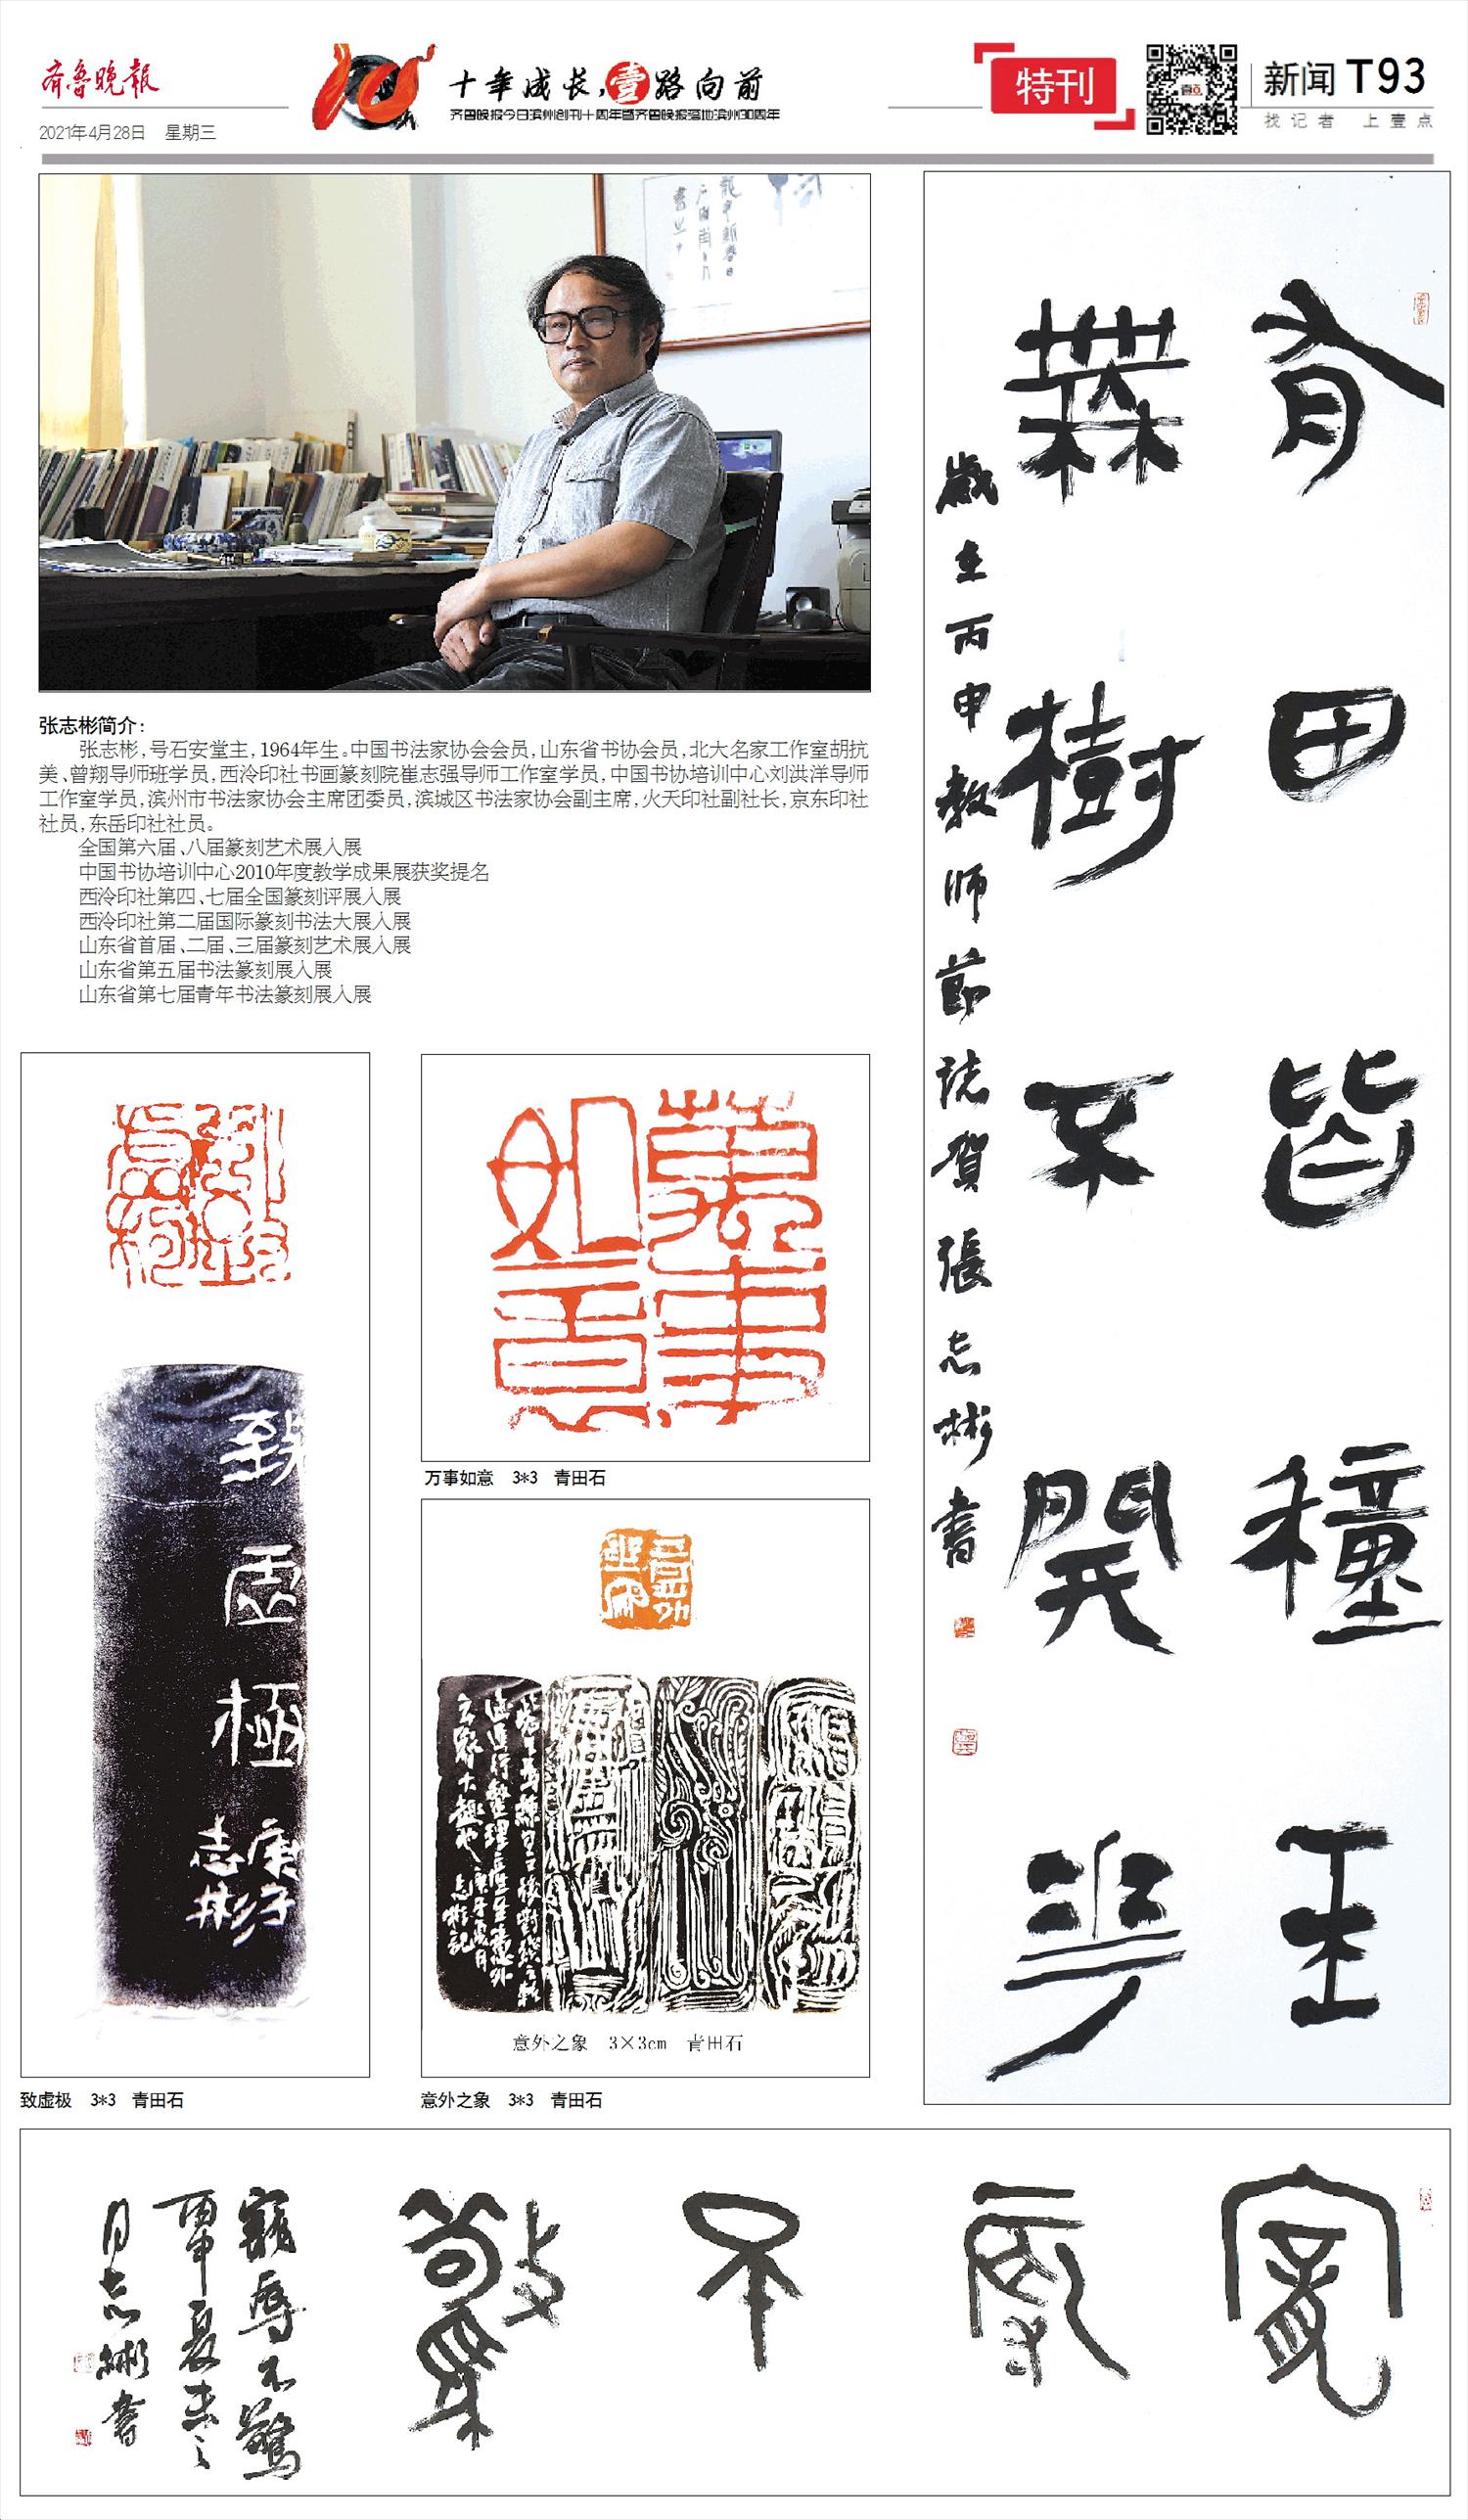 齐鲁晚报
2021年4月28日 星期三
十年成长，壹路向前
齐鲁晚报今日滨州创刊十周年暨齐鲁晚报落地滨州30周年
特刊
新闻 T93
找记者 上壹点
张志彬简介：
张志彬，号石安堂主，1964年生。中国书法家协会会员，山东省书协会员，北大名家工作室胡抗
美、曾翔导师班学员，西泠印社书画篆刻院崔志强导师工作室学员，中国书协培训中心刘洪洋导师
工作室学员，滨州市书法家协会主席团委员，滨城区书法家协会副主席，火天印社副社长，京东印社
社员，东岳印社社员。
全国第六届、八届篆刻艺术展入展
中国书协培训中心2010年度教学成果展获奖提名
西泠印社第四、七届全国篆刻评展入展
西泠印社第二届国际篆刻书法大展入展
山东省首届、二届、三届篆刻艺术展入展
山东省第五届书法篆刻展入展
山东省第七届青年书法篆刻展入展
有田皆種玉
無樹不開花
歲在丙申教師節誌賀張志彬書
致虛極
庚子
志彬
万事如意 3*3 青田石
意外之象 3×3cm 青田石
致虚极 3*3 青田石
意外之象 3*3 青田石
寵辱不驚
寵辱不驚
丙申夏
月志彬書